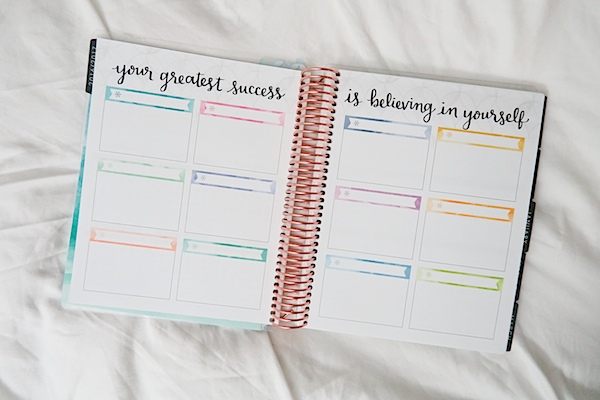 your greatest success
is believing in yourself
JANUARY